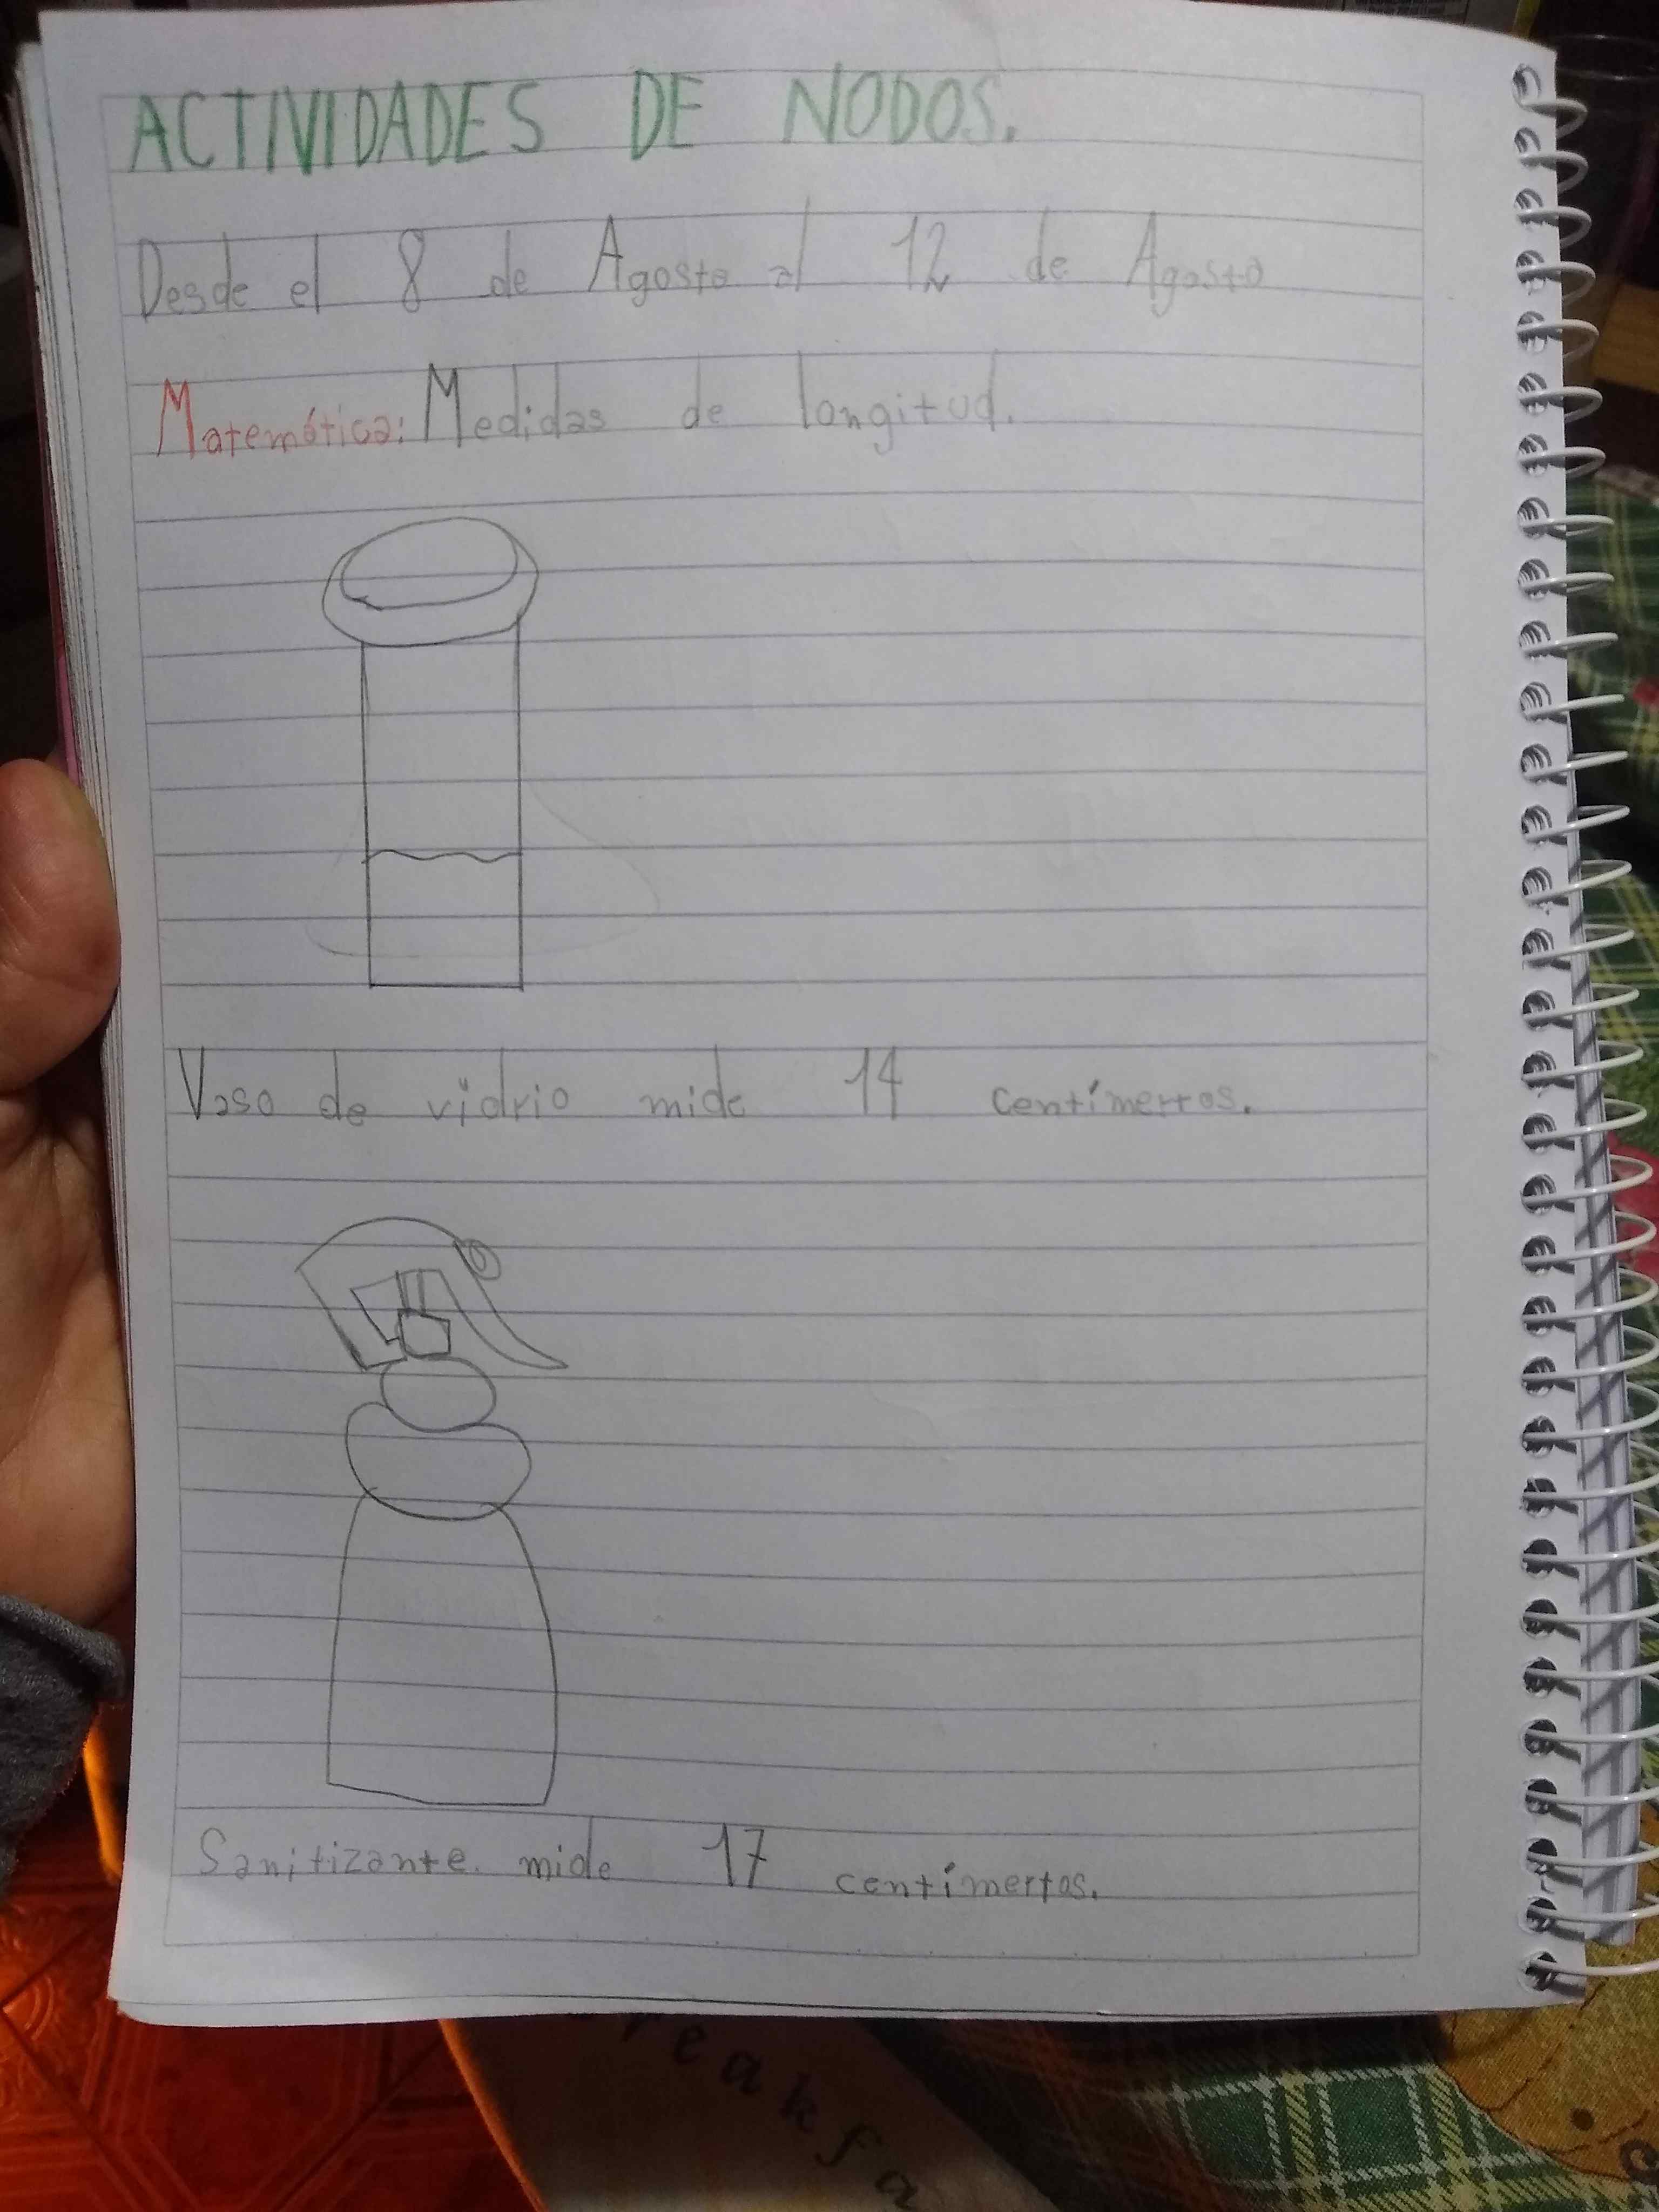 ACTIVIDADES DE NODOS.
Desde el 8 de Agosto al 12 de Agosto
Matemática: Medidas de longitud.
Vaso de vidrio mide 14 centímertos.
Sanitizante mide 17 centímertos.
reakfa